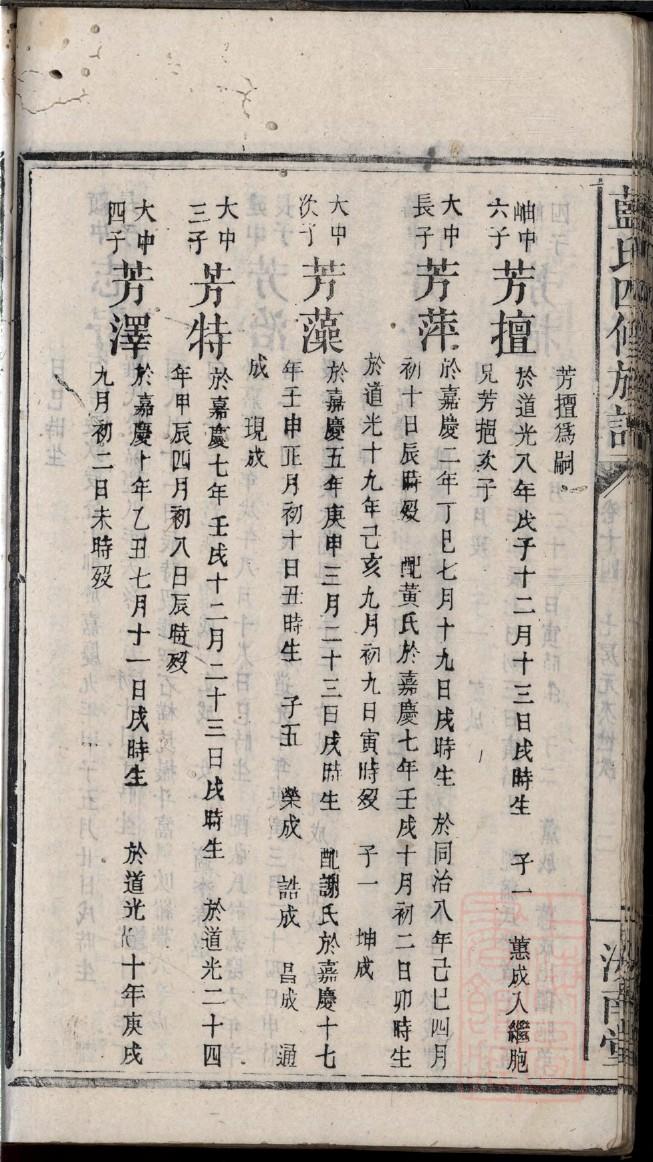 藍氏四修族譜
汝南堂
芳擅為嗣
岫中
六子
芳擅
於道光八年戊子十二月十三日戌時生 子一 蕙成入繼胞
兄芳挹次子
大中
長子
芳萍
於嘉慶二年丁巳七月十九日戌時生 於同治八年己巳四月
初十日辰時歿 配黃氏於嘉慶七年壬戌十月初二日卯時生
於道光十九年己亥九月初九日寅時歿 子一 坤成
大中
次子
芳藻
於嘉慶五年庚申三月二十三日戌時生 配謝氏於嘉慶十七
年壬申正月初十日丑時生 子五 榮成 誥成 昌成 通
成 現成
大中
三子
芳特
於嘉慶七年壬戌十二月二十三日戌時生 於道光二十四
年甲辰四月初八日辰時歿
大中
四子
芳澤
於嘉慶十年乙丑七月十一日戌時生 於道光三十年庚戌
九月初二日未時歿